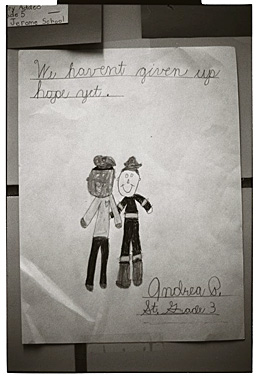 Jerome School
We havent given up
hope yet.
Andrea P.
St. Grade 3